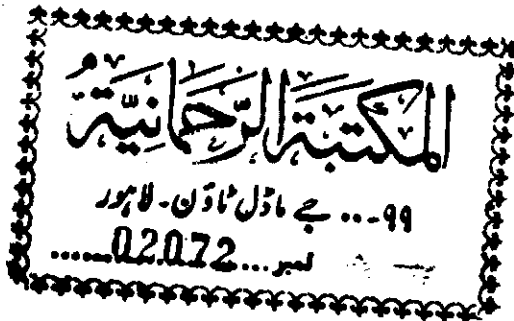 المكتبة الرحمانية
۹۹-... جے ماڈل ٹاؤن - لاہور
نمبر...02072......